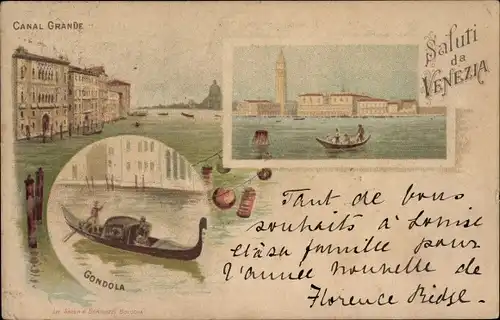 CANAL GRANDE
Saluti
da
VENEZIA
GONDOLA
Tant de bons
souhaits à Louise
et à sa famille pour
l'année nouvelle de
Florence Ridge.